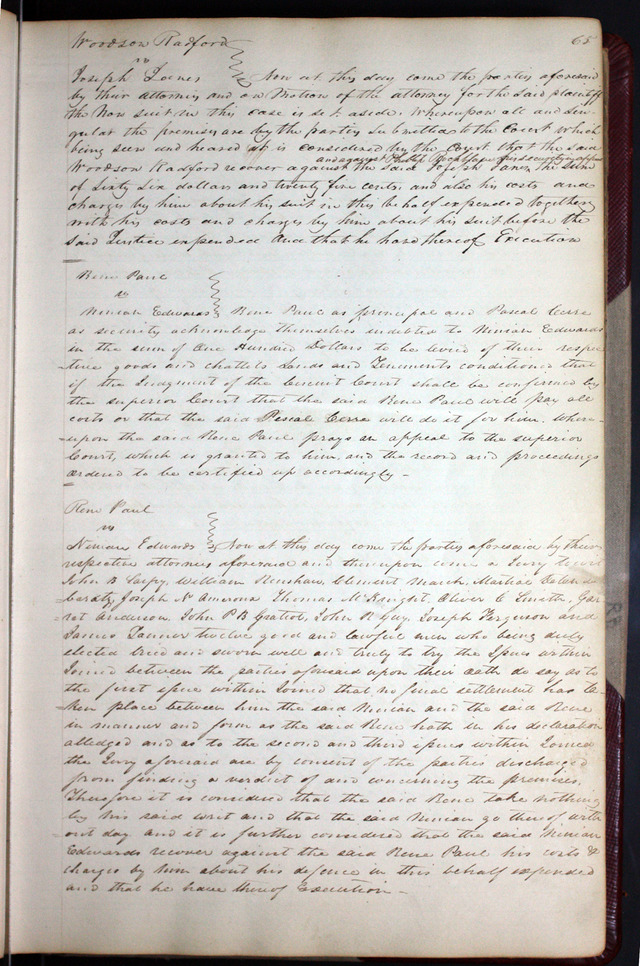 65
Woodson Radford
vs
Joseph Janes Now at this day come the parties aforesaid
by their attornies and on Motion of the attorney for the said plaintiff
the Non suit in this case is set aside. Whereupon all and Sin-
gular the premises are by the parties submitted to the Court which
being seen and heared it is considered by the Court that the said
and against Phillip Rocheblave his security in appeal
Woodson Radford recover against the said Joseph Janes the sum
of Sixty Six dollars and twenty five cents, and also his costs and
charges by him about his suit in this behalf expended together
with his costs and charges by him about his suit before the
said Justice expended And that he have thereof Execution
Rene Paul
vs
Ninian Edwards Rene Paul as principal and Pascal Cerre
as security acknowledge themselves indebted to Ninian Edwards
in the sum of One Hundred Dollars to be levied of their respec-
tive goods and chattels Lands and Tenements conditioned that
if the Judgment of the Circuit Court shall be confirmed by
the superior Court that the said Rene Paul will pay all
costs or that the said Pascal Cerre will do it for him. Where-
upon the said Rene Paul prays an appeal to the superior
Court, which is granted to him, and the record and proceedings
ordered to be certified up accordingly -
Rene Paul
vs
Ninian Edwards Now at this day come the parties aforesaid by their
respective attornies aforesaid and thereupon come a Jury towit
John B Sarpy, William Renshaw, Clement March,
Joseph N Amoroux Thomas McKnight, Oliver C Smith, Gar-
rot Anderson, John P B Gratiot, John R Guy, Joseph Ferguson and
James Tanner twelve good and lawful men who being duly
elected tried and sworn well and truly to try the Issues within
Joined between the parties aforesaid upon their oath do say as to
the first issue within Joined that no final settlement has ta-
ken place between him the said Ninian and the said Rene
in manner and form as the said Rene hath in his declaration
alledged and as to the second and third issues within Joined
the Jury aforesaid are by consent of the parties discharged
from finding a verdict of and concerning the premises.
Therefore it is considered that the said Rene take nothing
by his said writ and that the said Ninian go thereof with
out day and it is further considered that the said Ninian
Edwards recover against the said Rene Paul his costs &
charges by him about his defence in this behalf expended
and that he have thereof Execution -